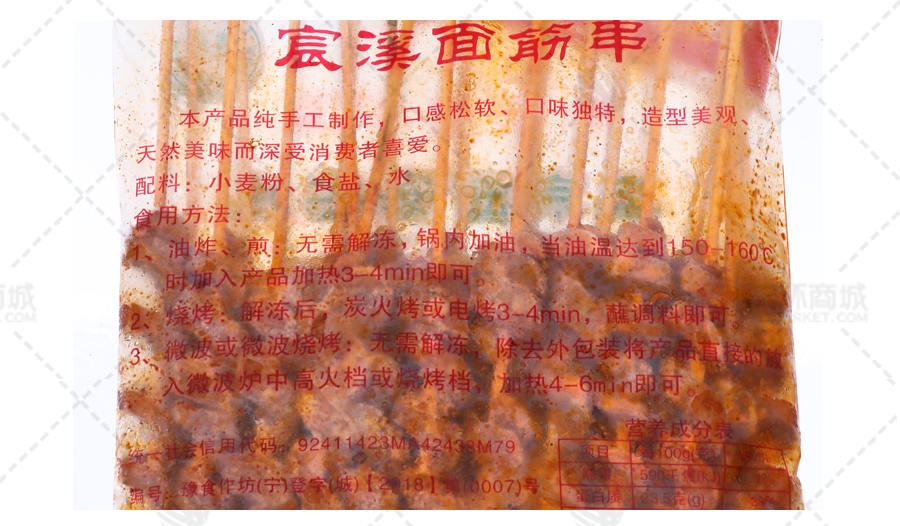 宸溪面筋串
本产品纯手工制作，口感松软、口味独特，造型美观、
天然美味而深受消费者喜爱。
配料：小麦粉、食盐、水
食用方法：
1、油炸、煎：无需解冻，锅内加油，当油温达到150-160℃
时加入产品加热3-4min即可。
2、烧烤：解冻后，炭火烤或电烤3-4min，蘸调料即可。
3、微波或微波烧烤：无需解冻，除去外包装将产品直接的放
入微波炉中高火档或烧烤档，加热4-6min即可。
营养成分表
统一社会信用代码：92411423MA42438M79
项目 每100g(克)
编号：豫食作坊(宁)登字(城)【2018】第(0007)号
蛋白质
商城
环商城